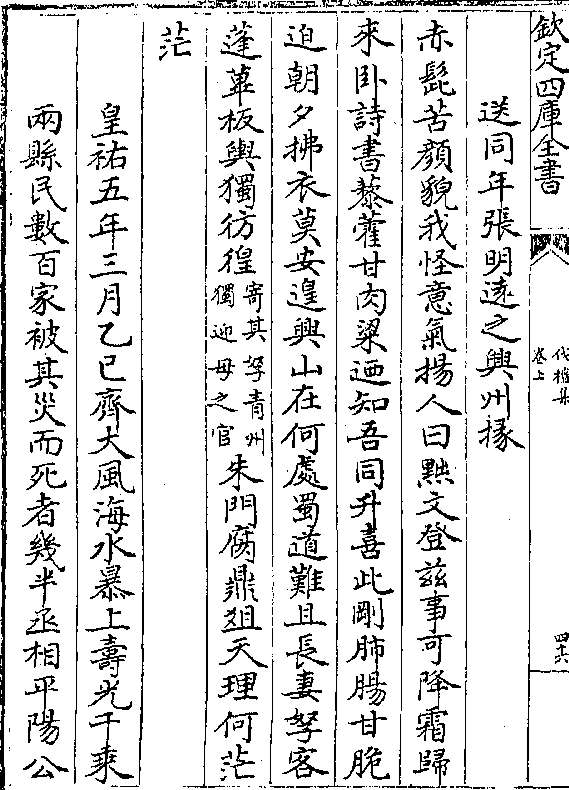 欽定四庫全書
伐檀集
卷上
四十六
送同年張明逺之興州掾
赤髭苦顔貌我怪意氣揚人曰黜文登兹事可降霜歸
來卧詩書藜藿甘肉粱迺知吾同升喜此剛肺腸甘脆
迫朝夕拂衣莫安遑興山在何處蜀道難且長妻孥客
蓬蓽板輿獨彷徨寄其孥青州獨迎母之官朱門腐鼎俎天理何茫
茫
皇祐五年三月乙巳齊大風海水暴上壽光千乘
兩縣民數百家被其災而死者幾半丞相平陽公